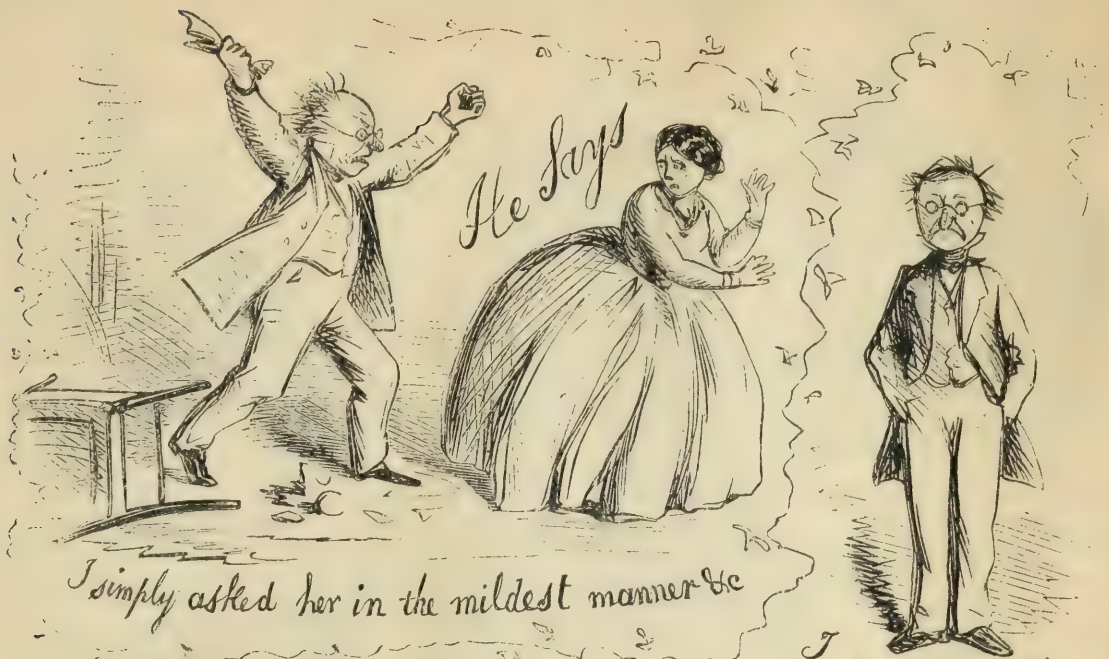 He Says
I simply asked her in the mildest manner &c
I